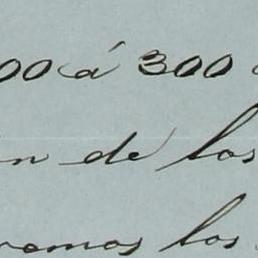 00 á 300
n de los
remos los